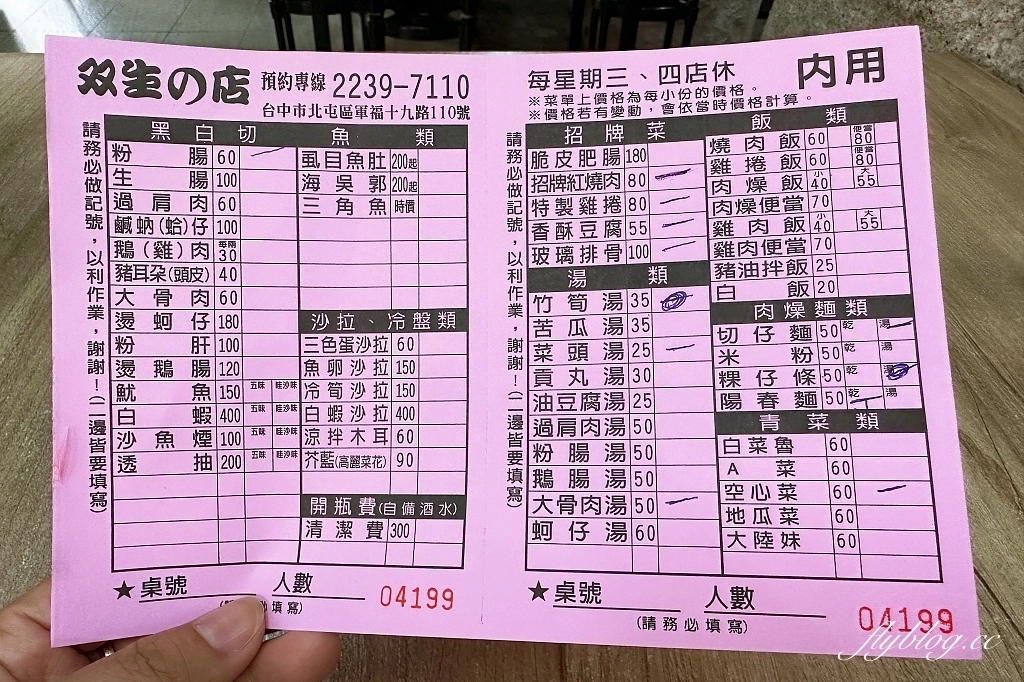 双生の店 預約專線 2239-7110
台中市北屯區軍福十九路110號
請務必做記號，以利作業，謝謝！(二邊皆要填寫)
黑白切
粉腸 60
生腸 100
過肩肉 60
鹹蚋(蛤)仔 100
鵝(雞)肉 每兩 30
豬耳朵(頭皮) 40
大骨肉 60
燙蚵仔 180
粉肝 100
燙鵝腸 120
魷魚 150 五味 哇沙味
白蝦 400 五味 哇沙味
沙魚煙 100 五味 哇沙味
透抽 200 五味 哇沙味
魚類
虱目魚肚 200起
海吳郭 200起
三角魚 時價
沙拉、冷盤類
三色蛋沙拉 60
魚卵沙拉 150
冷筍沙拉 150
白蝦沙拉 400
涼拌木耳 60
芥藍(高麗菜花) 90
開瓶費(自備酒水)
清潔費 300
★桌號 人數
填寫)
04199
每星期三、四店休 內用
※菜單上價格為每小份的價格。
※價格若有變動，會依當時價格計算。
請務必做記號，以利作業，謝謝！(二邊皆要填寫)
招牌菜
脆皮肥腸 180
招牌紅燒肉 80
特製雞捲 80
香酥豆腐 55
玻璃排骨 100
湯類
竹筍湯 35
苦瓜湯 35
菜頭湯 25
貢丸湯 30
油豆腐湯 25
過肩肉湯 50
粉腸湯 50
鵝腸湯 50
大骨肉湯 50
蚵仔湯 60
飯類
燒肉飯 60 便當 80
雞捲飯 60 便當 80
肉燥飯 小 40 大 55
肉燥便當 70
雞肉飯 小 40 大 55
雞肉便當 70
豬油拌飯 25
白飯 20
肉燥麵類
切仔麵 50 乾 湯
米粉 50 乾 湯
粿仔條 50 乾 湯
陽春麵 50 乾 湯
青菜類
白菜魯 60
A菜 60
空心菜 60
地瓜菜 60
大陸妹 60
★桌號 人數
(請務必填寫)
04199
flyblog.cc